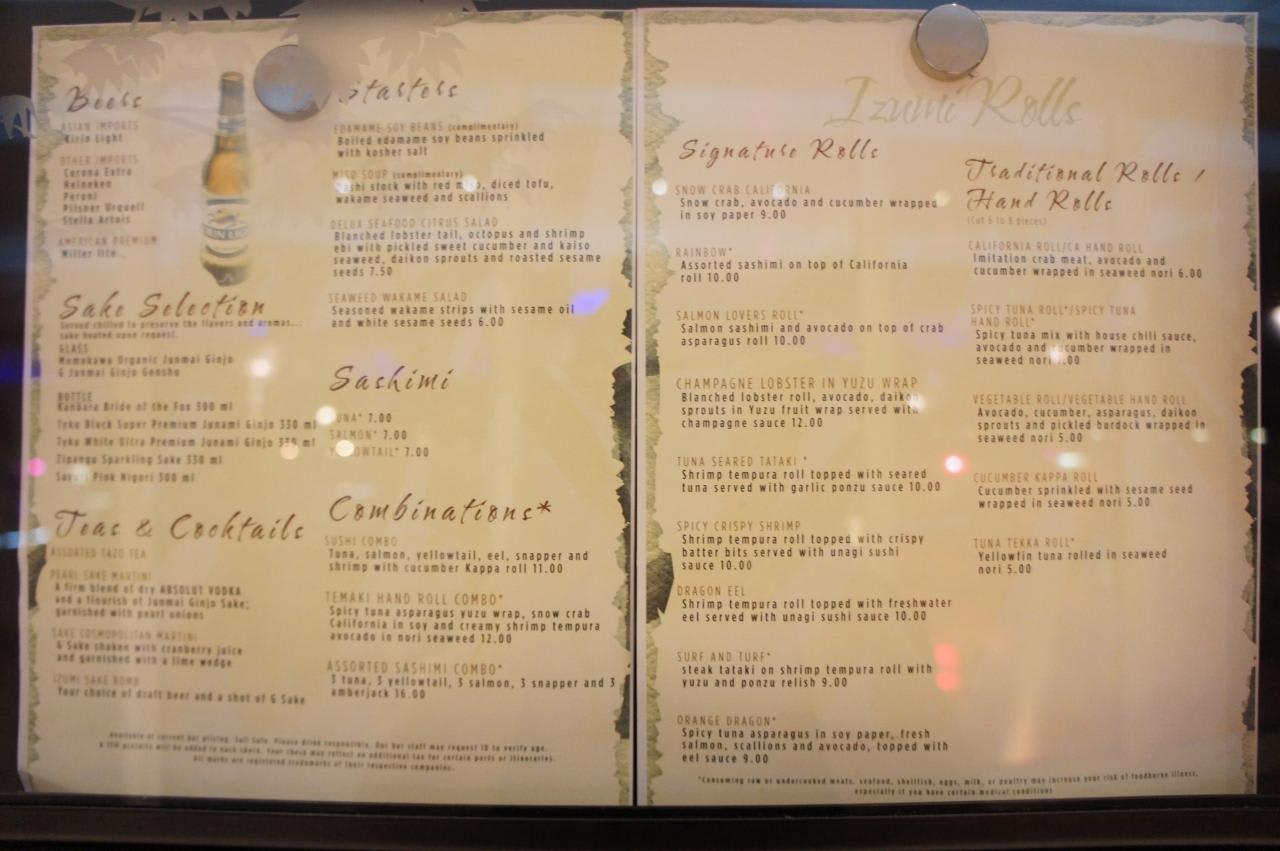 Beers
ASIAN IMPORTS
Kirin Light
OTHER IMPORTS
Corona Extra
Heineken
Peroni
Pilsner Urquell
Stella Artois
AMERICAN PREMIUM
Miller lite
Sake Selection
Served chilled to preserve the flavors and aromas...
sake heated upon request.
GLASS
Momokawa Organic Junmai Ginjo
G Junmai Ginjo Genshu
BOTTLE
Kanbara Bride of the Fox 300 ml
Tyku Black Super Premium Junami Ginjo 330 ml
Tyku White Ultra Premium Junami Ginjo 330 ml
Zipangu Sparkling Sake 330 ml
Sayuri Pink Nigori 300 ml
Teas & Cocktails
ASSORTED TAZO TEA
PEARL SAKE MARTINI
A firm blend of dry ABSOLUT VODKA
and a flourish of Junmai Ginjo Sake;
garnished with pearl onions
SAKE COSMOPOLITAN MARTINI
G Sake shaken with cranberry juice
and garnished with a lime wedge
IZUMI SAKE BOMB
Your choice of draft beer and a shot of G Sake
Starters
EDAMAME SOY BEANS (complimentary)
Boiled edamame soy beans sprinkled
with kosher salt
MISO SOUP (complimentary)
Dashi stock with red miso, diced tofu,
wakame seaweed and scallions
DELUX SEAFOOD CITRUS SALAD
Blanched lobster tail, octopus and shrimp
ebi with pickled sweet cucumber and kaiso
seaweed, daikon sprouts and roasted sesame
seeds 7.50
SEAWEED WAKAME SALAD
Seasoned wakame strips with sesame oil
and white sesame seeds 6.00
Sashimi
TUNA* 7.00
SALMON* 7.00
YELLOWTAIL* 7.00
Combinations*
SUSHI COMBO
Tuna, salmon, yellowtail, eel, snapper and
shrimp with cucumber Kappa roll 11.00
TEMAKI HAND ROLL COMBO*
Spicy tuna asparagus yuzu wrap, snow crab
California in soy and creamy shrimp tempura
avocado in nori seaweed 12.00
ASSORTED SASHIMI COMBO*
3 tuna, 3 yellowtail, 3 salmon, 3 snapper and 3
amberjack 16.00
Available at current bar pricing. Sail Safe. Please drink responsibly. Our bar staff may request ID to verify age.
A 15% gratuity will be added to each check. Your check may reflect an additional tax for certain ports or itineraries.
All marks are registered trademarks of their respective companies.
Izumi Rolls
Signature Rolls
SNOW CRAB CALIFORNIA
Snow crab, avocado and cucumber wrapped
in soy paper 9.00
RAINBOW*
Assorted sashimi on top of California
roll 10.00
SALMON LOVERS ROLL*
Salmon sashimi and avocado on top of crab
asparagus roll 10.00
CHAMPAGNE LOBSTER IN YUZU WRAP
Blanched lobster roll, avocado, daikon
sprouts in Yuzu fruit wrap served with
champagne sauce 12.00
TUNA SEARED TATAKI *
Shrimp tempura roll topped with seared
tuna served with garlic ponzu sauce 10.00
SPICY CRISPY SHRIMP
Shrimp tempura roll topped with crispy
batter bits served with unagi sushi
sauce 10.00
DRAGON EEL
Shrimp tempura roll topped with freshwater
eel served with unagi sushi sauce 10.00
SURF AND TURF*
steak tataki on shrimp tempura roll with
yuzu and ponzu relish 9.00
ORANGE DRAGON*
Spicy tuna asparagus in soy paper, fresh
salmon, scallions and avocado, topped with
eel sauce 9.00
Traditional Rolls /
Hand Rolls
(Cut 6 to 8 pieces)
CALIFORNIA ROLL/CA HAND ROLL
Imitation crab meat, avocado and
cucumber wrapped in seaweed nori 6.00
SPICY TUNA ROLL*/SPICY TUNA
HAND ROLL*
Spicy tuna mix with house chili sauce,
avocado and cucumber wrapped in
seaweed nori
VEGETABLE ROLL/VEGETABLE HAND ROLL
Avocado, cucumber, asparagus, daikon
sprouts and pickled burdock wrapped in
seaweed nori 5.00
CUCUMBER KAPPA ROLL
Cucumber sprinkled with sesame seed
wrapped in seaweed nori 5.00
TUNA TEKKA ROLL*
Yellowfin tuna rolled in seaweed
nori 5.00
*Consuming raw or undercooked meats, seafood, shellfish, eggs, milk, or poultry may increase your risk of foodborne illness,
especially if you have certain medical conditions